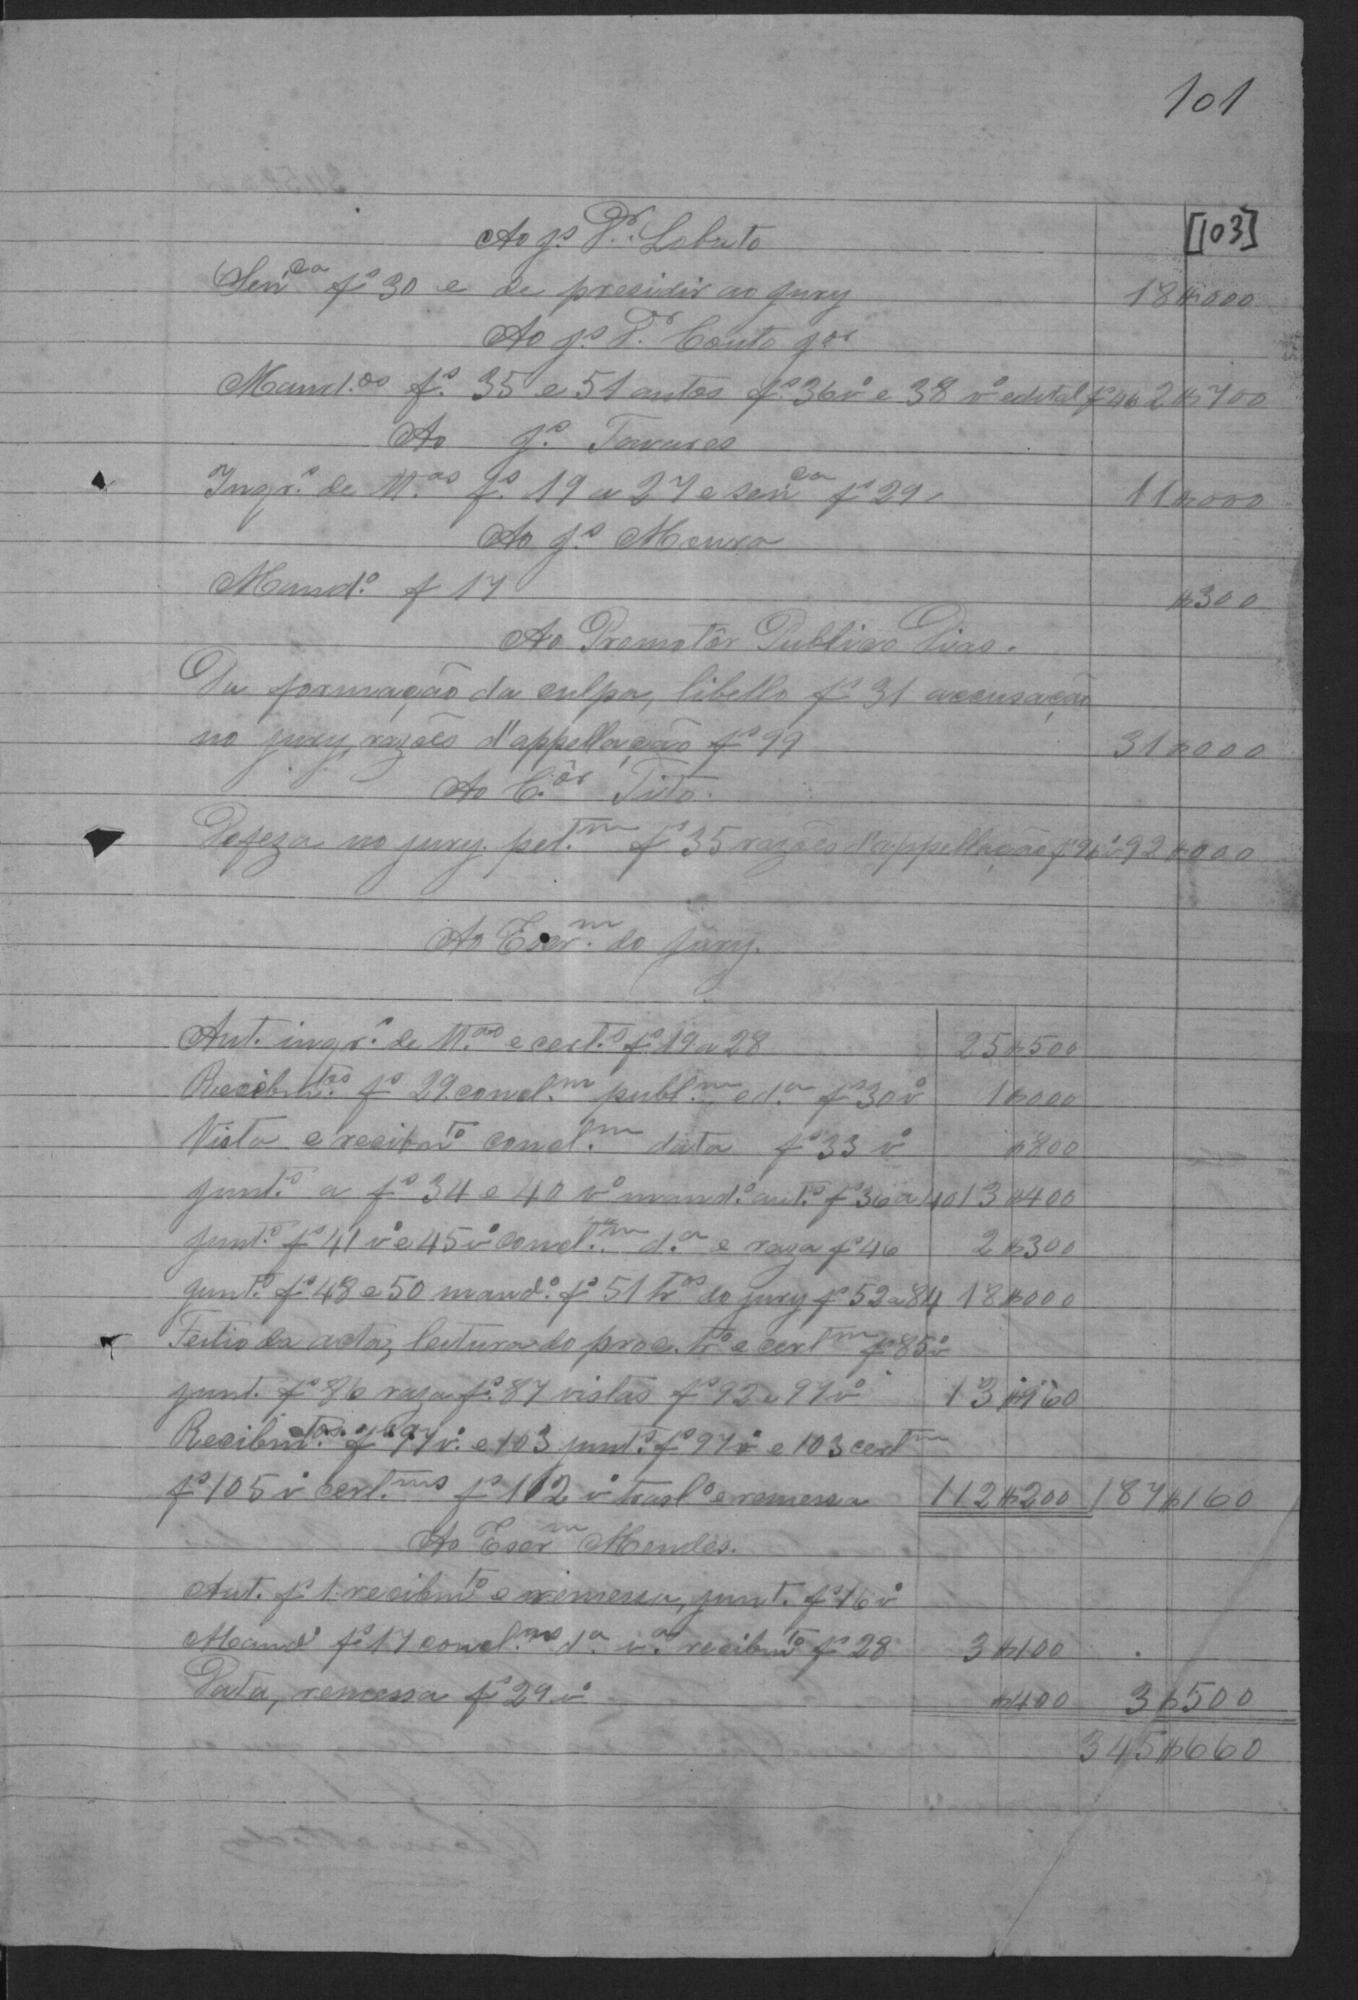 101
[103]
Ao Js. Dr. Lobato
Senca fs 30 e de presidir ao jury 18$000
Ao Js. Dr. Couto jor
Mand.os fs. 35 e 51 autos fs. 36vo e 38 vo edital fs 46 2$700
Ao Js. Tavares
Inqr.s de tt.as fs. 19 a 27 e senca fs 29, 11$000
Ao Js. Moura
Mand.o f 17 $300
Ao Promotôr Publico Dias.
Da formação da culpa, libello fs 31 accusação
no jury, razões d'appellação fs 99 31$000
Ao C.or Tito.
Defeza no jury. pet.m fs 35 razões d'appellação fs 92$000
Ao Escr.m do jury.
Aut. inqr.s de tt.as e cert.s fs. 19 a 28 25$500
Recibm.tos fs 29 concl.m publ.m e d.a fs 30 vo 1$000
Vista e recibmto concl.m data fs 33 vo $800
Junt.s a fs 34 e 40 vo mand.o aut.s fs 36 a 40 13$400
Junt.s fs 41 vo e 45 vo concl.m d.a e raza fs 46 2$300
Junt.s fs. 48 e 50 mand.o fs 51 tros do jury fs 52 a 84 18$000
Feitio da acta, leitura do proc. tro e certm fs 85 vo
junt. fs 86 raza fs. 87 vistas fs 92 e 97 vo 13$960
Recibm.tos fs 97 vo e 103 junt.s fs 97 vo e 103 certm
fs 105 vo cert.ms fs 112 vo trasl.o e remessa 112$200 187$160
Ao Escrm Mendes.
Aut. fs 1 recibmto e remessa, junt. fs 16 vo
Mando fs. 17 concl.ms d.a v.a recibmto fs 28 3$100
Data, remessa fs 29 vo $400 3$500
345$660